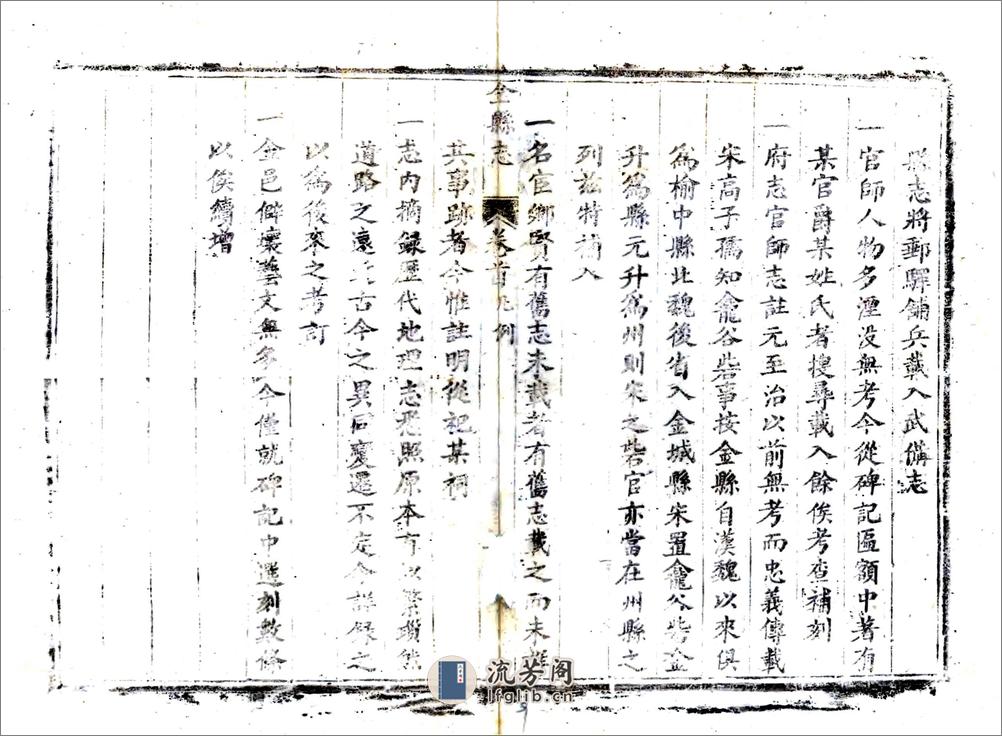 縣志將郵驛鋪兵載入武備志
一官師人物多湮没無考今從碑記匾額中著有
某官爵某姓氏者搜尋載入餘俟考查補刻
一府志官師志註元至治以前無考而忠義傳載
宋高子孺知龕谷砦事按金縣自漢魏以來俱
為榆中縣北魏後省入金城縣宋置龕谷砦金
升為縣元升為州則宋之砦官亦當在州縣之
列茲特補入
金縣志 卷首凡例
一名宦鄉賢有舊志未載者有舊志載之而未詳
其事跡者今惟註明從祀某祠
一志内摘録歷代地理志悉照原本有以繁瑣然
道路之遠近古今之異同變遷不定今詳録之
以為後來之考訂
一金邑僻壤藝文無多今僅就碑記中選刻數條
以俟續增
流芳阁
lfglib.cn